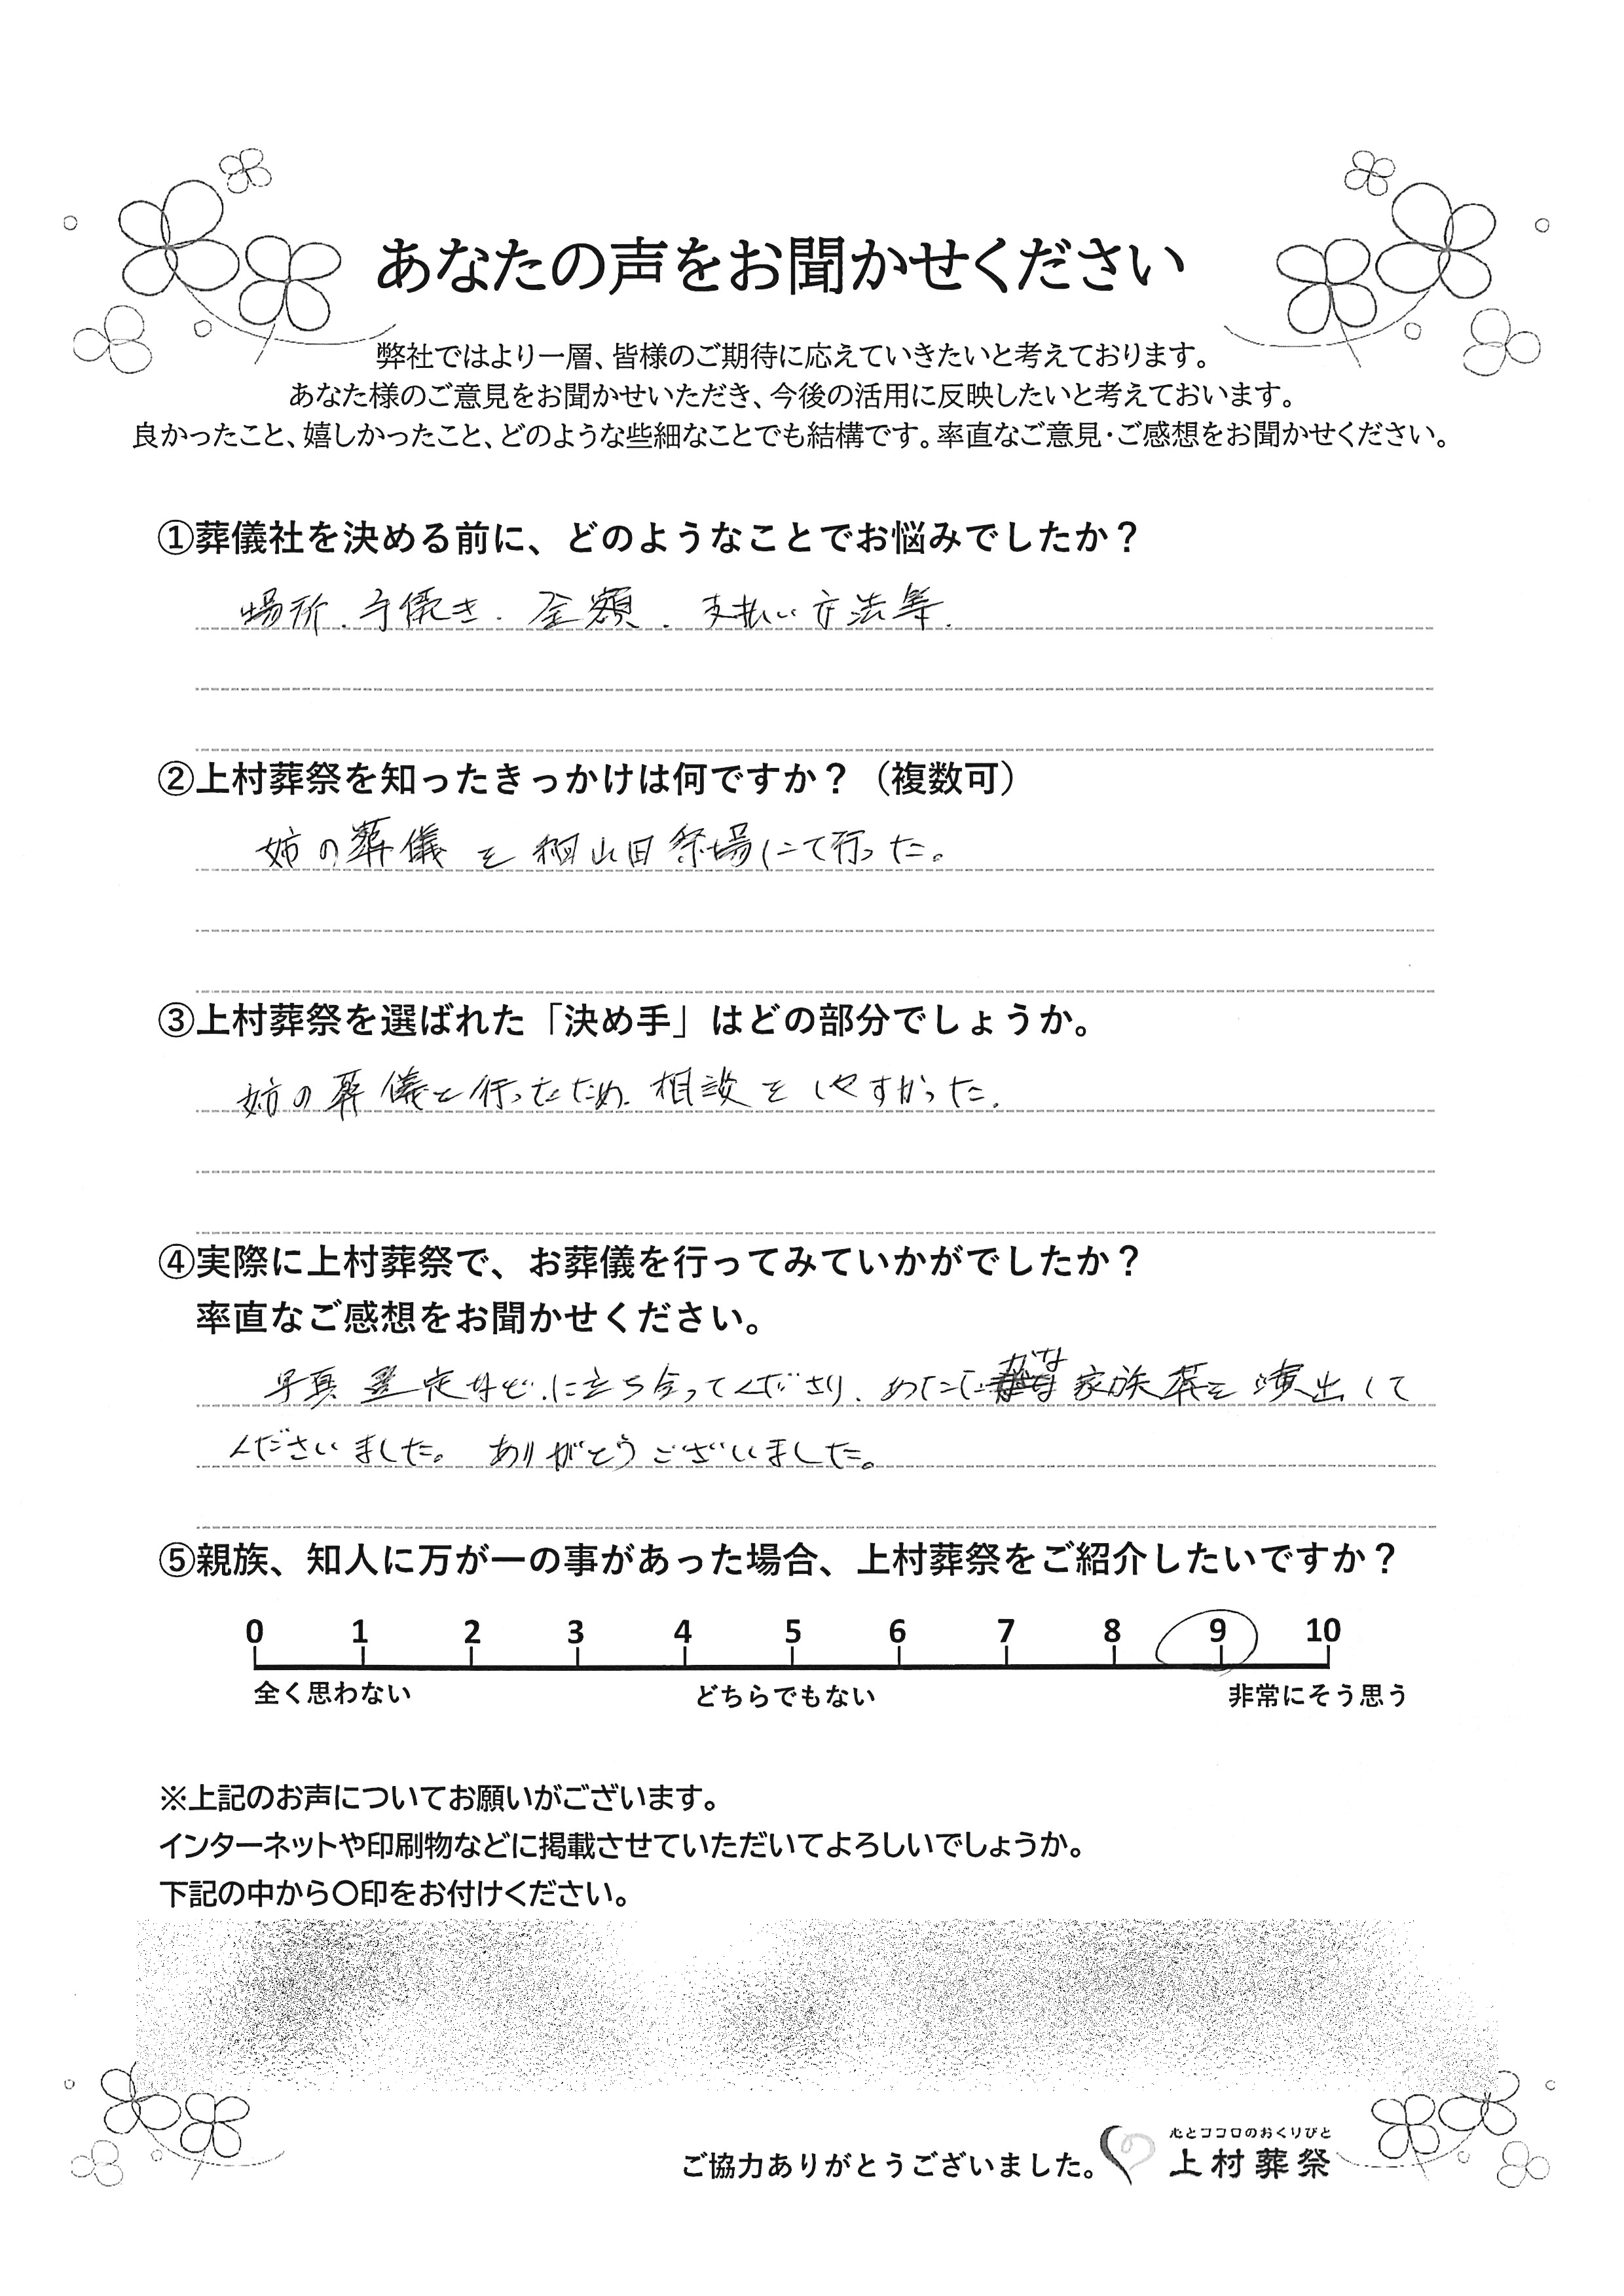 あなたの声をお聞かせください
弊社ではより一層、皆様のご期待に応えていきたいと考えております。
あなた様のご意見をお聞かせいただき、今後の活用に反映したいと考えておいます。
良かったこと、嬉しかったこと、どのような些細なことでも結構です。率直なご意見・ご感想をお聞かせください。
①葬儀社を決める前に、どのようなことでお悩みでしたか？
場所、手続き、金額、支払い方法等。
②上村葬祭を知ったきっかけは何ですか？（複数可）
姉の葬儀を 山田祭場にて行った。
③上村葬祭を選ばれた「決め手」はどの部分でしょうか。
姉の葬儀を行ったため、相談をしやすかった。
④実際に上村葬祭で、お葬儀を行ってみていかがでしたか？
率直なご感想をお聞かせください。
写真選定などに立ち合ってくださり、 家族葬を演出して
くださいました。ありがとうございました。
⑤親族、知人に万が一の事があった場合、上村葬祭をご紹介したいですか？
0 1 2 3 4 5 6 7 8 9 10
全く思わない どちらでもない 非常にそう思う
※上記のお声についてお願いがございます。
インターネットや印刷物などに掲載させていただいてよろしいでしょうか。
下記の中から〇印をお付けください。
心とココロのおくりびと
ご協力ありがとうございました。 上村葬祭